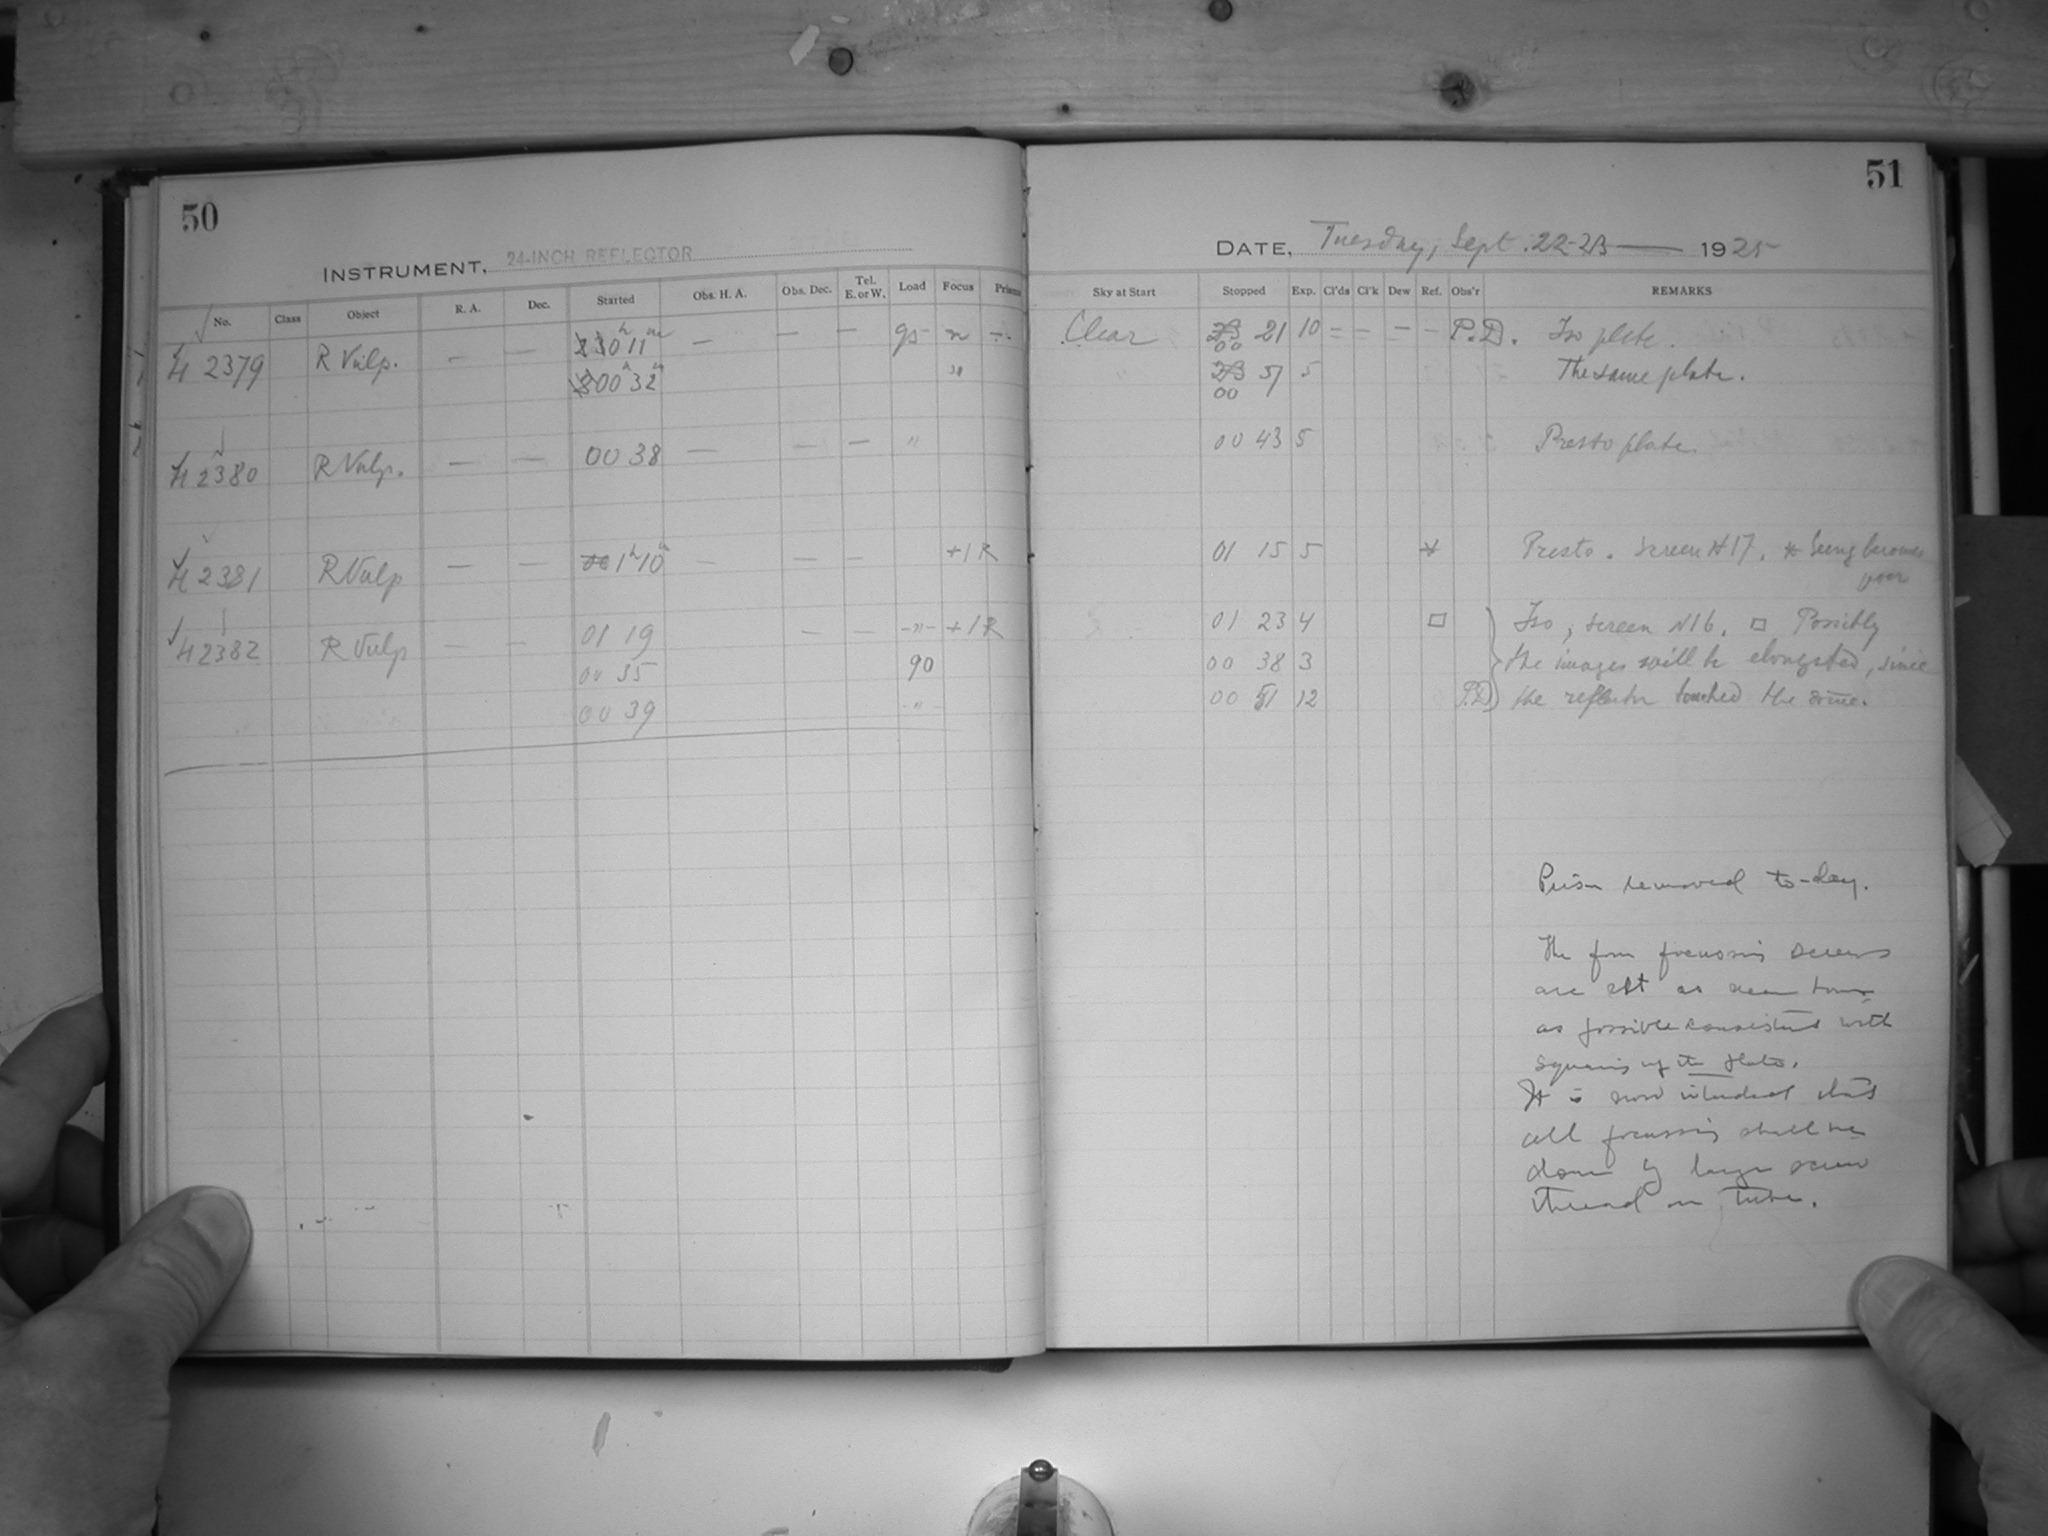 50
INSTRUMENT, 24-INCH REFLECTOR
No. Class Object R. A. Dec. Started Obs. H. A. Obs. Dec. Tel. E. or W. Load Focus Prisms
H 2379 R Vulp. — — 00 11 — — — n —
00 32 "
H 2380 R Vulp. — — 00 38 — — — "
H 2381 R Vulp — — 1h 10m — — — +1R
H 2382 R Vulp — — 01 19 — — -"- +1R
00 35 90
00 39 -"-
51
DATE, Tuesday, Sept. 22-23 — 1925
Sky at Start Stopped Exp. Cl'ds Cl'k Dew Ref. Obs'r REMARKS
Clear 00 21 10 — — — — P.D. Iso plate.
00 37 5 The same plate.
00 43 5 Presto plate.
01 15 5 * Presto. Screen #17. * Seeing becomes
poor
01 23 4 □ Iso, screen N16. □ Possibly
00 38 3 the images will be elongated, since
00 51 12 P.D. the reflector touched the dome.
Prism removed to-day.
The four focussing screws
are set as
as possible consistent with
squaring of the plate.
It is now intended that
all focussing shall be
done by large screw
thread on tube.